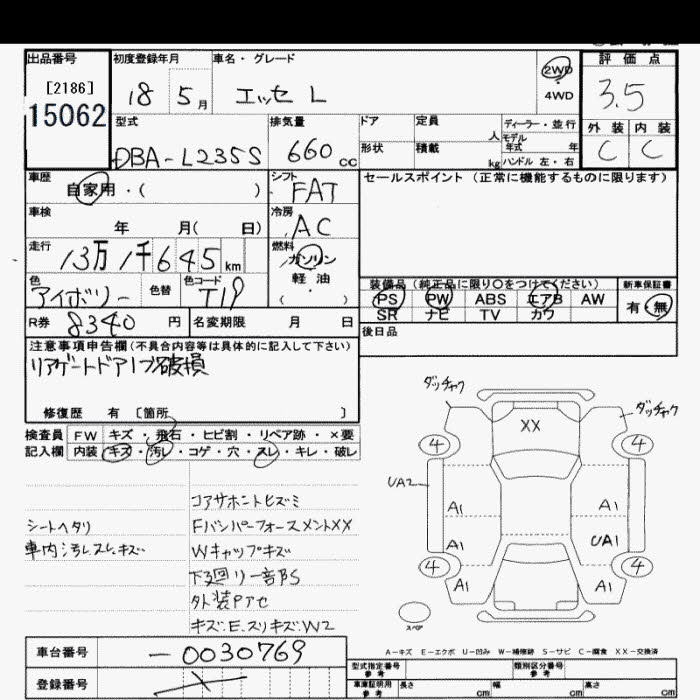 出品番号
[2186]
15062
初度登録年月
18 5月
車名・グレード
エッセ L
2WD
4WD
評価点
3.5
外装 内装
C C
型式
DBA-L235S
排気量
660 cc
ドア
形状
定員
人
積載
kg
ディーラー・並行
モデル
年式 年
ハンドル 左・右
車歴
自家用・( )
シフト
FAT
セールスポイント (正常に機能するものに限ります)
車検
年 月( 日)
冷房
AC
走行
13万1千645km
燃料
ガソリン
軽油
( ・ )
色
アイボリー
色替
色コード
T19
装備品 (純正品に限り〇をつけてください)
PS PW ABS エアB AW
SR ナビ TV カワ
新車保証書
有・無
R券 8340 円
名変期限 月 日
後日品
注意事項申告欄(不具合内容等は具体的に記入して下さい)
リアゲートドアノブ破損
修復歴 有 〔箇所 〕
検査員
記入欄
FW キズ・飛石・ヒビ割・リペア跡・×要
内装 キズ・汚レ・コゲ・穴・スレ・キレ・破レ
コアサポートヒズミ
シートヘタリ
FバンパーフォースメントXX
車内汚レスレキズ
Wキャップキズ
下廻リ一部BS
外装Pアセ
キズ.E.スリキズ.W2
ダッチャク
ダッチャク
XX
4
4
UA2
A1
A1
A1
UA1
4
4
A1
A1
スペア
A-キズ E-エクボ U-凹み W-補修跡 S-サビ C-腐食 XX-交換済
車台番号
-0030769
登録番号
型式指定番号
参考
類別区分番号
参考
車庫証明用
参考
長さ cm
幅 cm
高さ cm